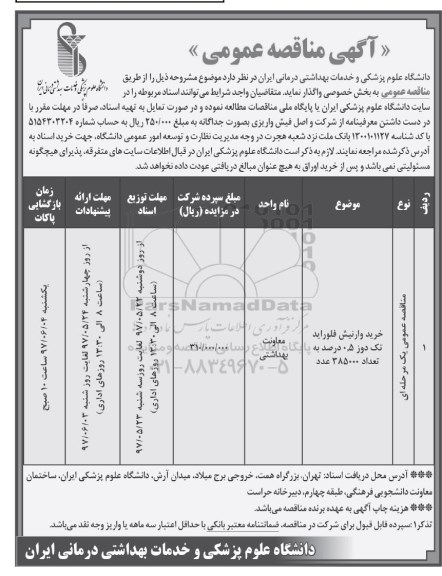 « آگهی مناقصه عمومی »
دانشگاه علوم پزشکی و خدمات بهداشتی درمانی ایران در نظر دارد موضوع مشروحه ذیل را از طریق
مناقصه عمومی به بخش خصوصی واگذار نماید. متقاضیان واجد شرایط می‌توانند اسناد مربوطه را در
سایت دانشگاه علوم پزشکی ایران یا پایگاه ملی مناقصات مطالعه نموده و در صورت تمایل به تهیه اسناد، صرفاً در مهلت مقرر با
در دست داشتن معرفینامه از شرکت و اصل فیش واریزی بصورت جداگانه به مبلغ ۲۵۰/۰۰۰ ریال به حساب شماره ۵۱۵۴۳۰۳۲۰۴
با کد شناسه ۱۳۰۰۱۰۱۱۲۷ بانک ملت نزد شعبه هجرت در وجه مدیریت نظارت و توسعه امور عمومی دانشگاه، جهت خرید اسناد به
آدرس ذکر شده مراجعه نمایند. لازم به ذکر است دانشگاه علوم پزشکی ایران در قبال اطلاعات سایت های متفرقه، پذیرای هیچگونه
مسئولیتی نمی باشد و پس از خرید اوراق به هیچ عنوان مبالغ دریافتی عودت داده نخواهد شد.
ردیف
نوع
موضوع
نام واحد
مبلغ سپرده شرکت در مزایده (ریال)
مهلت توزیع اسناد
مهلت ارائه پیشنهادات
زمان بازگشایی پاکات
۱
مناقصه عمومی یک مرحله ای
خرید وارنیش فلوراید
تک دوز ۰.۵ درصد به
تعداد ۳۸۵۰۰۰ عدد
معاونت
بهداشتی
۳۱۰/۰۰۰/۰۰۰
از روز دوشنبه ۹۷/۰۵/۲۲ لغایت روز سه شنبه ۹۷/۰۵/۲۳
(ساعت ۸ الی ۱۲:۳۰ روزهای اداری)
از روز چهارشنبه ۹۷/۰۵/۲۴ لغایت روز شنبه ۹۷/۰۶/۰۳
(ساعت ۸ الی ۱۲:۳۰ روزهای اداری)
یکشنبه ۹۷/۰۶/۰۴ ساعت ۱۰ صبح
ParsNamadData
۰۲۱-۸۸۳۴۹۶۷۰-۵
*** آدرس محل دریافت اسناد: تهران، بزرگراه همت، خروجی برج میلاد، میدان آرش، دانشگاه علوم پزشکی ایران، ساختمان
معاونت دانشجویی فرهنگی، طبقه چهارم، دبیرخانه حراست
*** هزینه چاپ آگهی به عهده برنده مناقصه می‌باشد.
تذکر۱: سپرده قابل قبول برای شرکت در مناقصه، ضمانتنامه معتبر بانکی با حداقل اعتبار سه ماهه یا واریز وجه نقد می‌باشد.
دانشگاه علوم پزشکی و خدمات بهداشتی درمانی ایران